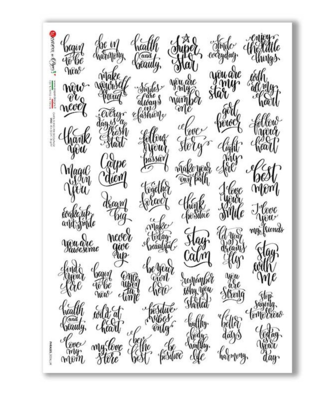 begin
to be
now
now
or
never
thank
you
Magic
in
you
wake up
and smile
you are
awesome
find
your
fire
health
and
beauty
love
my
mom
be in
harmony
make
yourself
proud
every
day is a
fresh
start
Carpe
diem
dream
big
never
give
up
begin
to be
now
wild at
heart
my love
story
health
and
beauty
smiles
are
always
in
fashion
follow
your
passion
together
forever
make
beautiful
once
upon a
time
be your
own
hero
be
the
best
Super
Star
you are
my
number
one
love
story
make your
own path
think
positive
stay
calm
remember
why you
started
positive
vibes
only
be
positive
simple
everyday
you are
my
star
girl
power
light
my
fire
I love
your
smile
you
are
strong
better
days
happy
life
harmony
enjoy
the little
things
with
all my
heart
follow
your
heart
best
mom
I love
you
my friends
stay
with
me
tomorrow
today
your
day